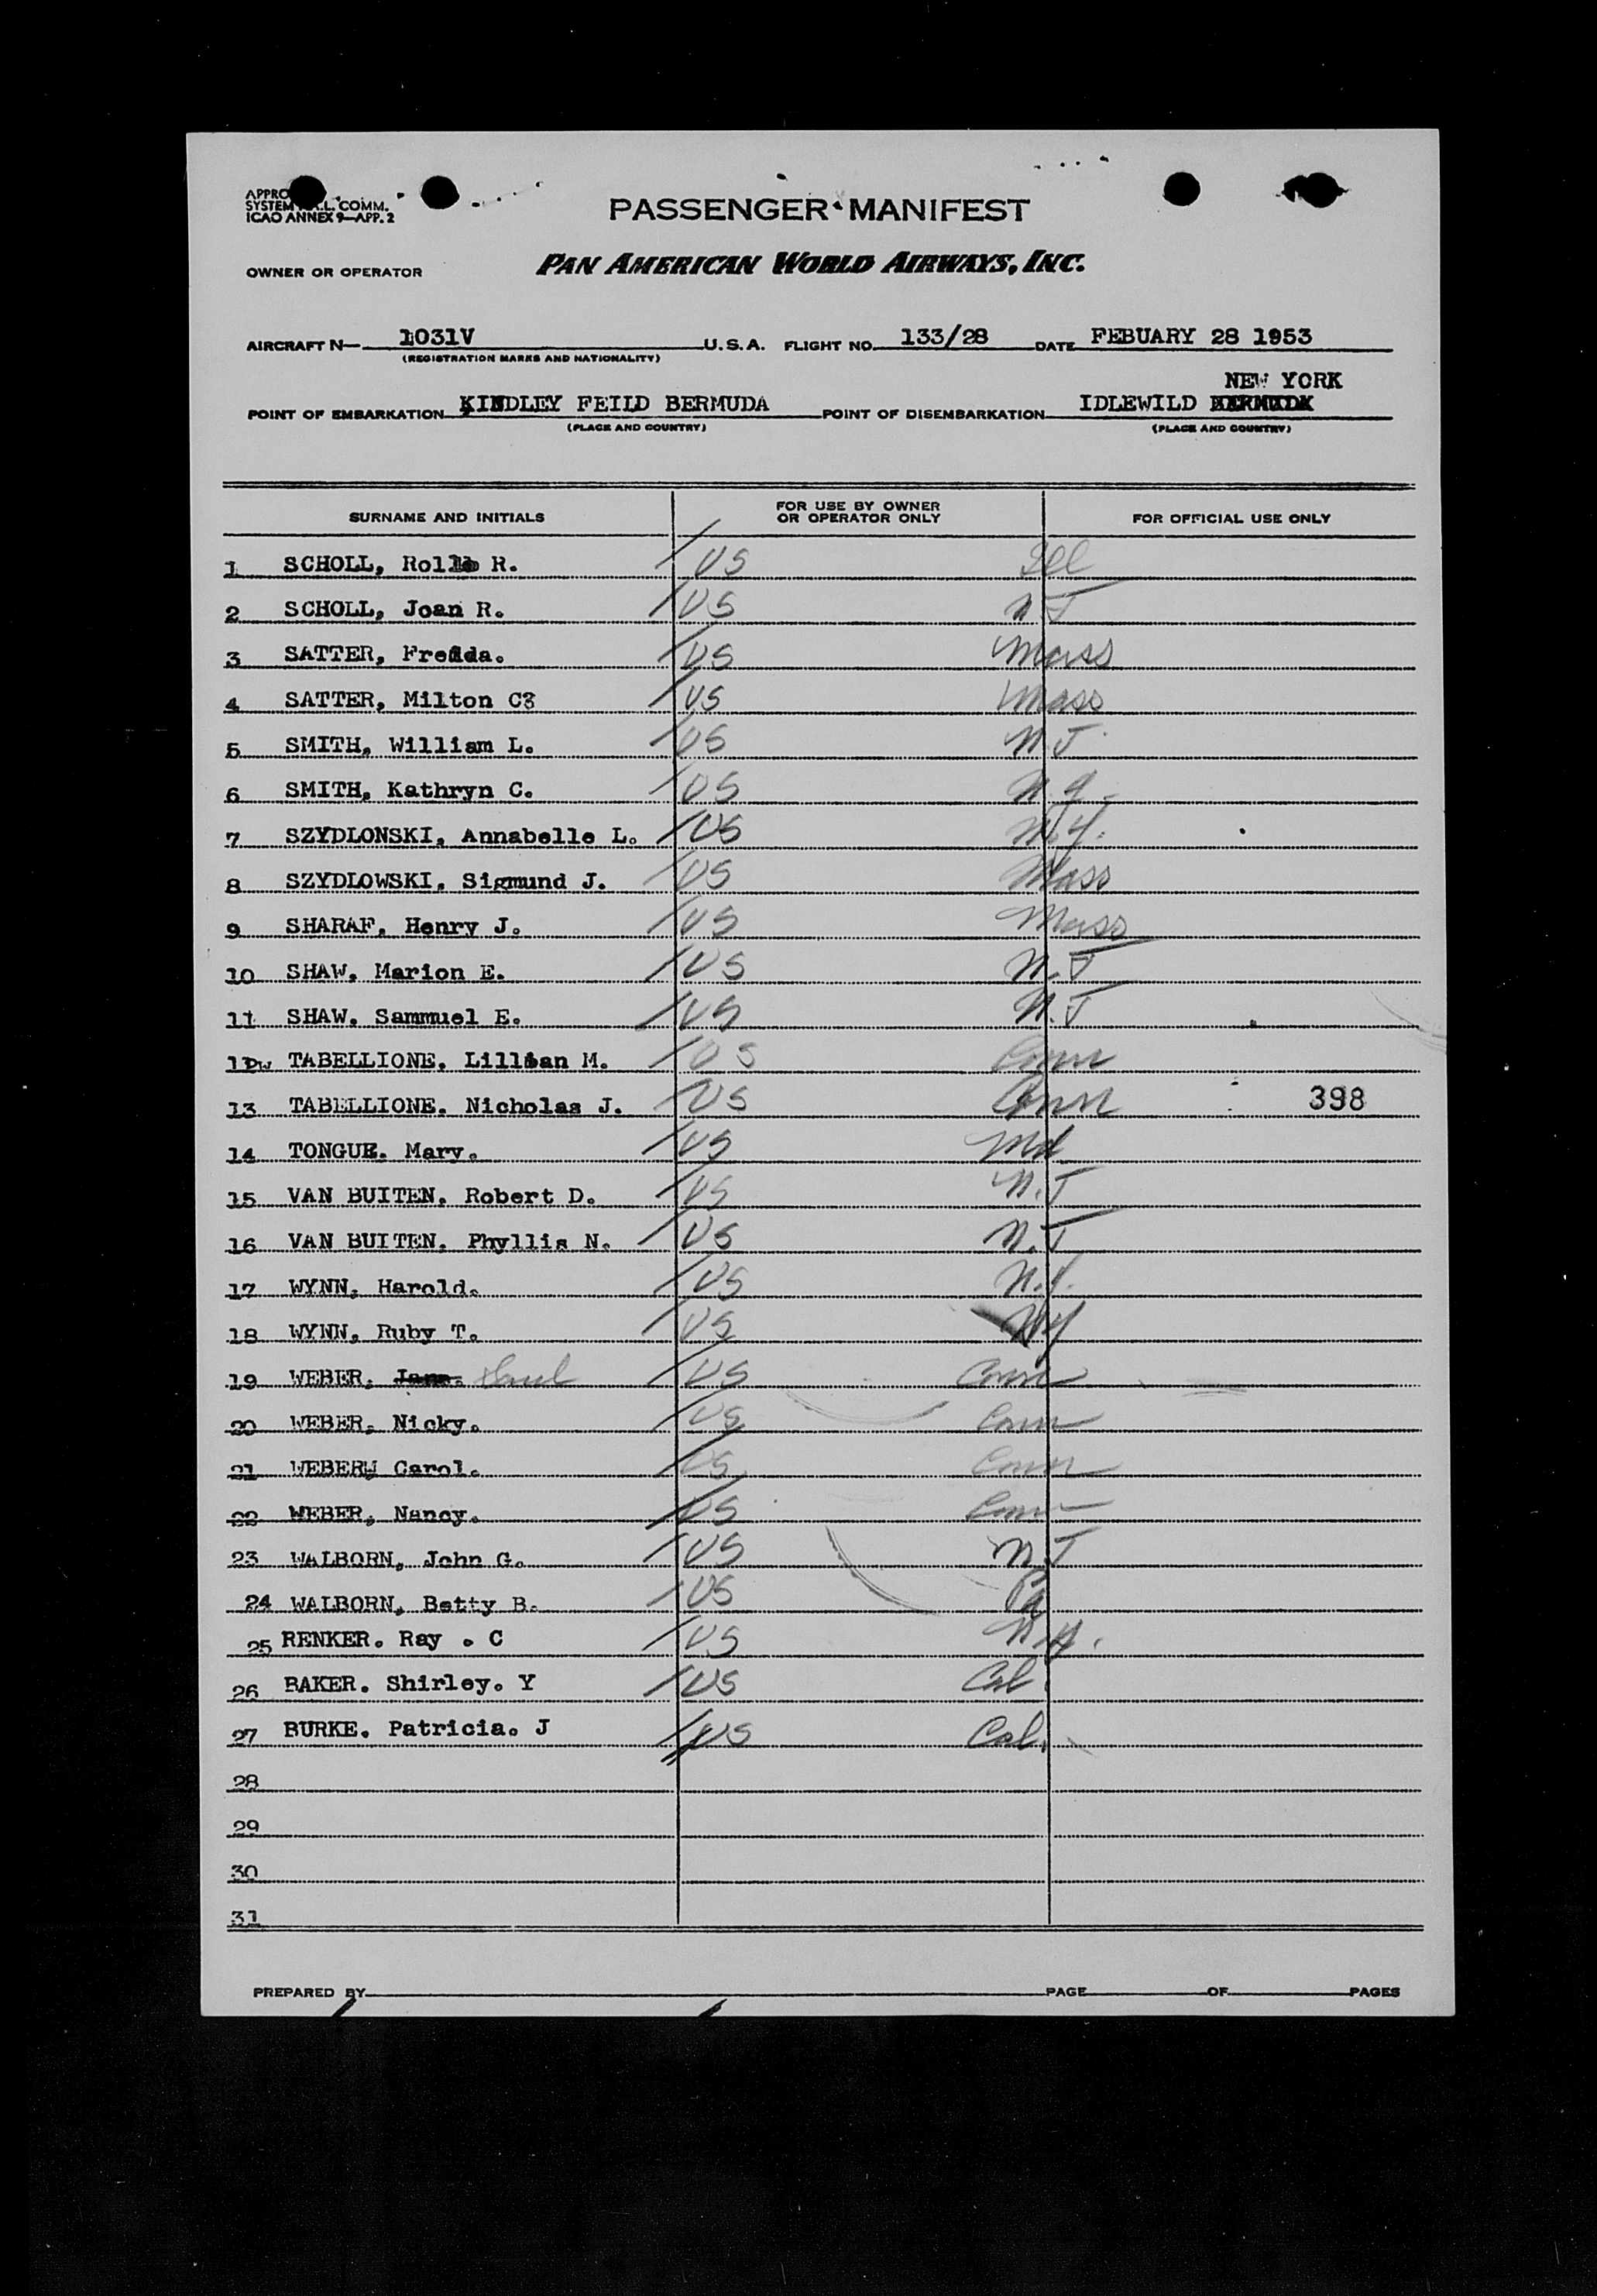 APPRO
SYSTEM .L. COMM.
ICAO ANNEX 9—APP. 2
PASSENGER MANIFEST
OWNER OR OPERATOR PAN AMERICAN WORLD AIRWAYS, INC.
AIRCRAFT N— 1031V U.S.A. FLIGHT NO. 133/28 DATE FEBUARY 28 1953
(REGISTRATION MARKS AND NATIONALITY)
NEW YORK
POINT OF EMBARKATION KINDLEY FEILD BERMUDA POINT OF DISEMBARKATION IDLEWILD
(PLACE AND COUNTRY) (PLACE AND COUNTRY)
SURNAME AND INITIALS FOR USE BY OWNER OR OPERATOR ONLY FOR OFFICIAL USE ONLY
1 SCHOLL, R. US
2 SCHOLL, Joan R. US NJ
3 SATTER, US Mass
4 SATTER, Milton C3 US Mass
5 SMITH, William L. US N.J
6 SMITH, Kathryn C. US
7 SZYDLONSKI, Annabelle L. US N.Y.
8 SZYDLOWSKI, Sigmund J. US Mass
9 SHARAF, Henry J. US Mass
10 SHAW, Marion E. US N.J
11 SHAW, Sammuel E. US N.J
TABELLIONE, Lillian M. US Conn
13 TABELLIONE, Nicholas J. US Conn 398
14 TONGUE. Mary. US Md
15 VAN BUITEN, Robert D. US N.J
16 VAN BUITEN, Phyllis N. US N.J
17 WYNN, Harold. US N.Y.
18 WYNN, Ruby T. US NY
19 WEBER, US Conn
20 WEBER, Nicky. US Conn
21 WEBERW Carol. US Conn
22 WEBER, Nancy. US Conn
23 WALBORN, John G. US NJ
24 WALBORN, Betty B. US Pa
25 RENKER. Ray . C US N.Y.
26 BAKER. Shirley. Y US Cal
27 BURKE. Patricia. J US Cal.
28
29
30
31
PREPARED BY PAGE OF PAGES